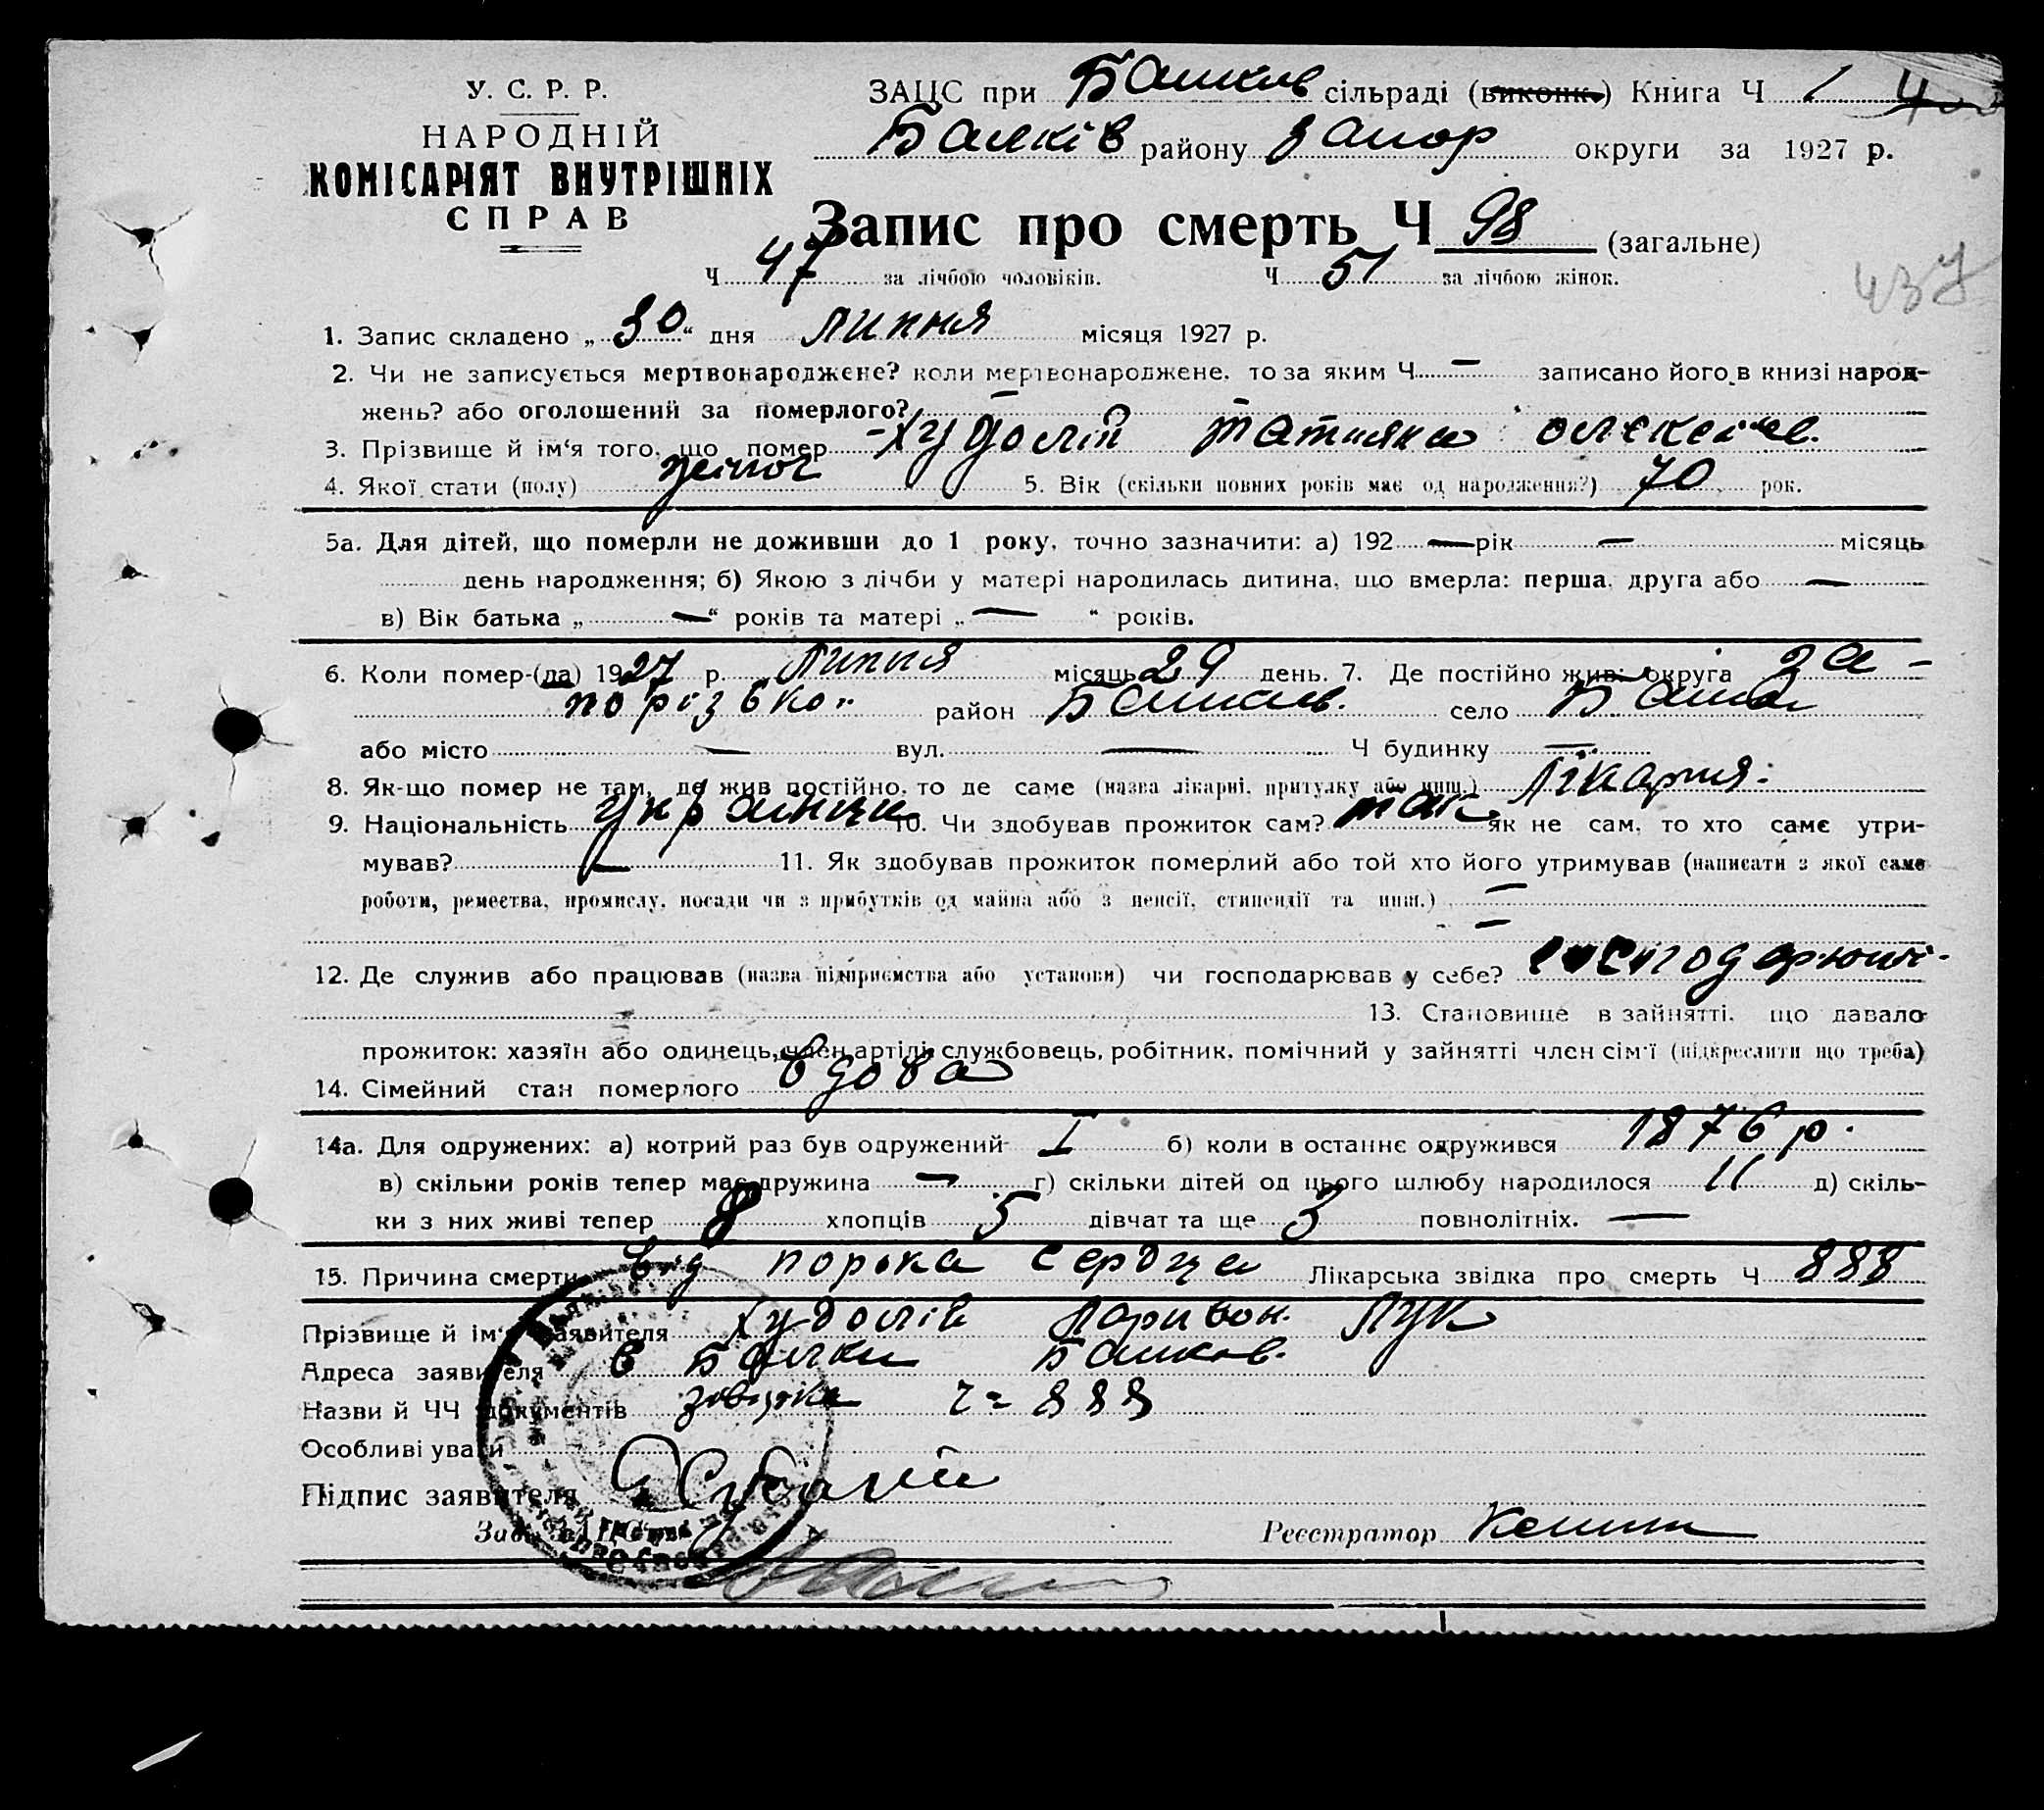 У. С. Р. Р.
НАРОДНІЙ
КОМІСАРІЯТ ВНУТРІШНІХ
СПРАВ
ЗАЦС при Балків сільраді (виконк.) Книга Ч 1
Балків району Запор округи за 1927 р.
Запис про смерть Ч 98 (загальне)
Ч 47 за лічбою чоловіків. Ч 51 за лічбою жінок.
437
1. Запис складено „30“ дня липня місяця 1927 р.
2. Чи не записується мертвонароджене? коли мертвонароджене, то за яким Ч — записано його в книзі народ-
жень? або оголошений за померлого? —
3. Прізвище й ім'я того, що помер Худолій Татияна Олексієв.
4. Якої стати (полу) жіноч 5. Вік (скільки повних років має од народження?) 70 рок.
5а. Для дітей, що померли не доживши до 1 року, точно зазначити: а) 192 — рік — місяць
день народження; б) Якою з лічби у матері народилась дитина, що вмерла: перша, друга або —
в) Вік батька „ — “ років та матері „ — “ років.
6. Коли помер-(ла) 1927 р. липня місяць 29 день. 7. Де постійно жив: округа За-
порізько район Балків. село Балки
або місто — вул. — Ч будинку —
8. Як-що помер не там, де жив постійно, то де саме (назва лікарні, притулку або инш.) Лікарня
9. Національність українка 10. Чи здобував прожиток сам? так як не сам, то хто саме утри-
мував? — 11. Як здобував прожиток померлий або той хто його утримував (написати з якої саме
роботи, ремества, промислу, посади чи з прибутків од майна або з пенсії, стипендії та инш.) —
—
12. Де служив або працював (назва підприємства або установи) чи господарював у себе?
13. Становище в зайнятті, що давало
прожиток: хазяїн або одинець, член артілі, службовець, робітник, помічний у зайнятті член сім'ї (підкреслити що треба)
14. Сімейний стан померлого вдова
14а. Для одружених: а) котрий раз був одружений I б) коли в останнє одружився 1876 р.
в) скільки років тепер має дружина — г) скільки дітей од цього шлюбу народилося 11 д) скіль-
ки з них живі тепер 8 хлопців 5 дівчат та ще 3 повнолітніх. —
15. Причина смерти від порока сердца Лікарська звідка про смерть Ч 888
Прізвище й ім'я заявителя Худолій Ларивон. Лук
Адреса заявителя с Балки Балков.
Назви й ЧЧ документів звідка ч = 888
Особливі уваги
Підпис заявителя Худолій
Зав. ЗАЦС'у
Реєстратор